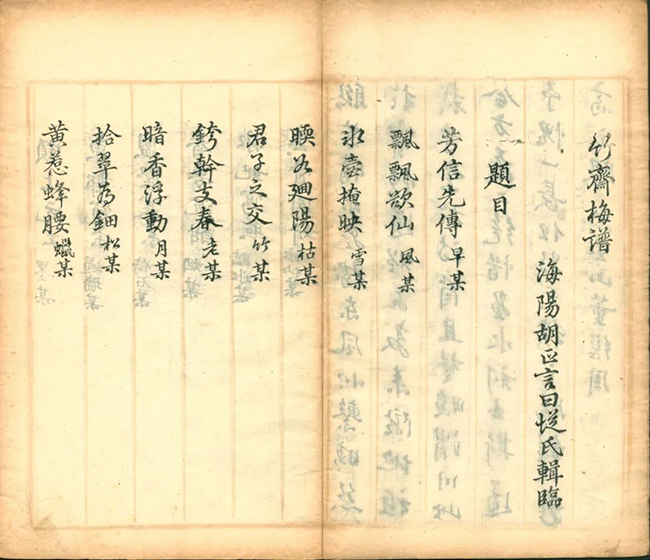 竹齋梅譜
海陽胡正言曰從氏輯臨
題目
芳信先傳 早某
飄飄欲仙 風某
氷壺掩映 雪某
暎谷廻陽 枯某
君子之交 竹某
鋳幹支春 老某
暗香浮動 月某
拾翠為鈿 松某
黄惹蜂腰 蠟某